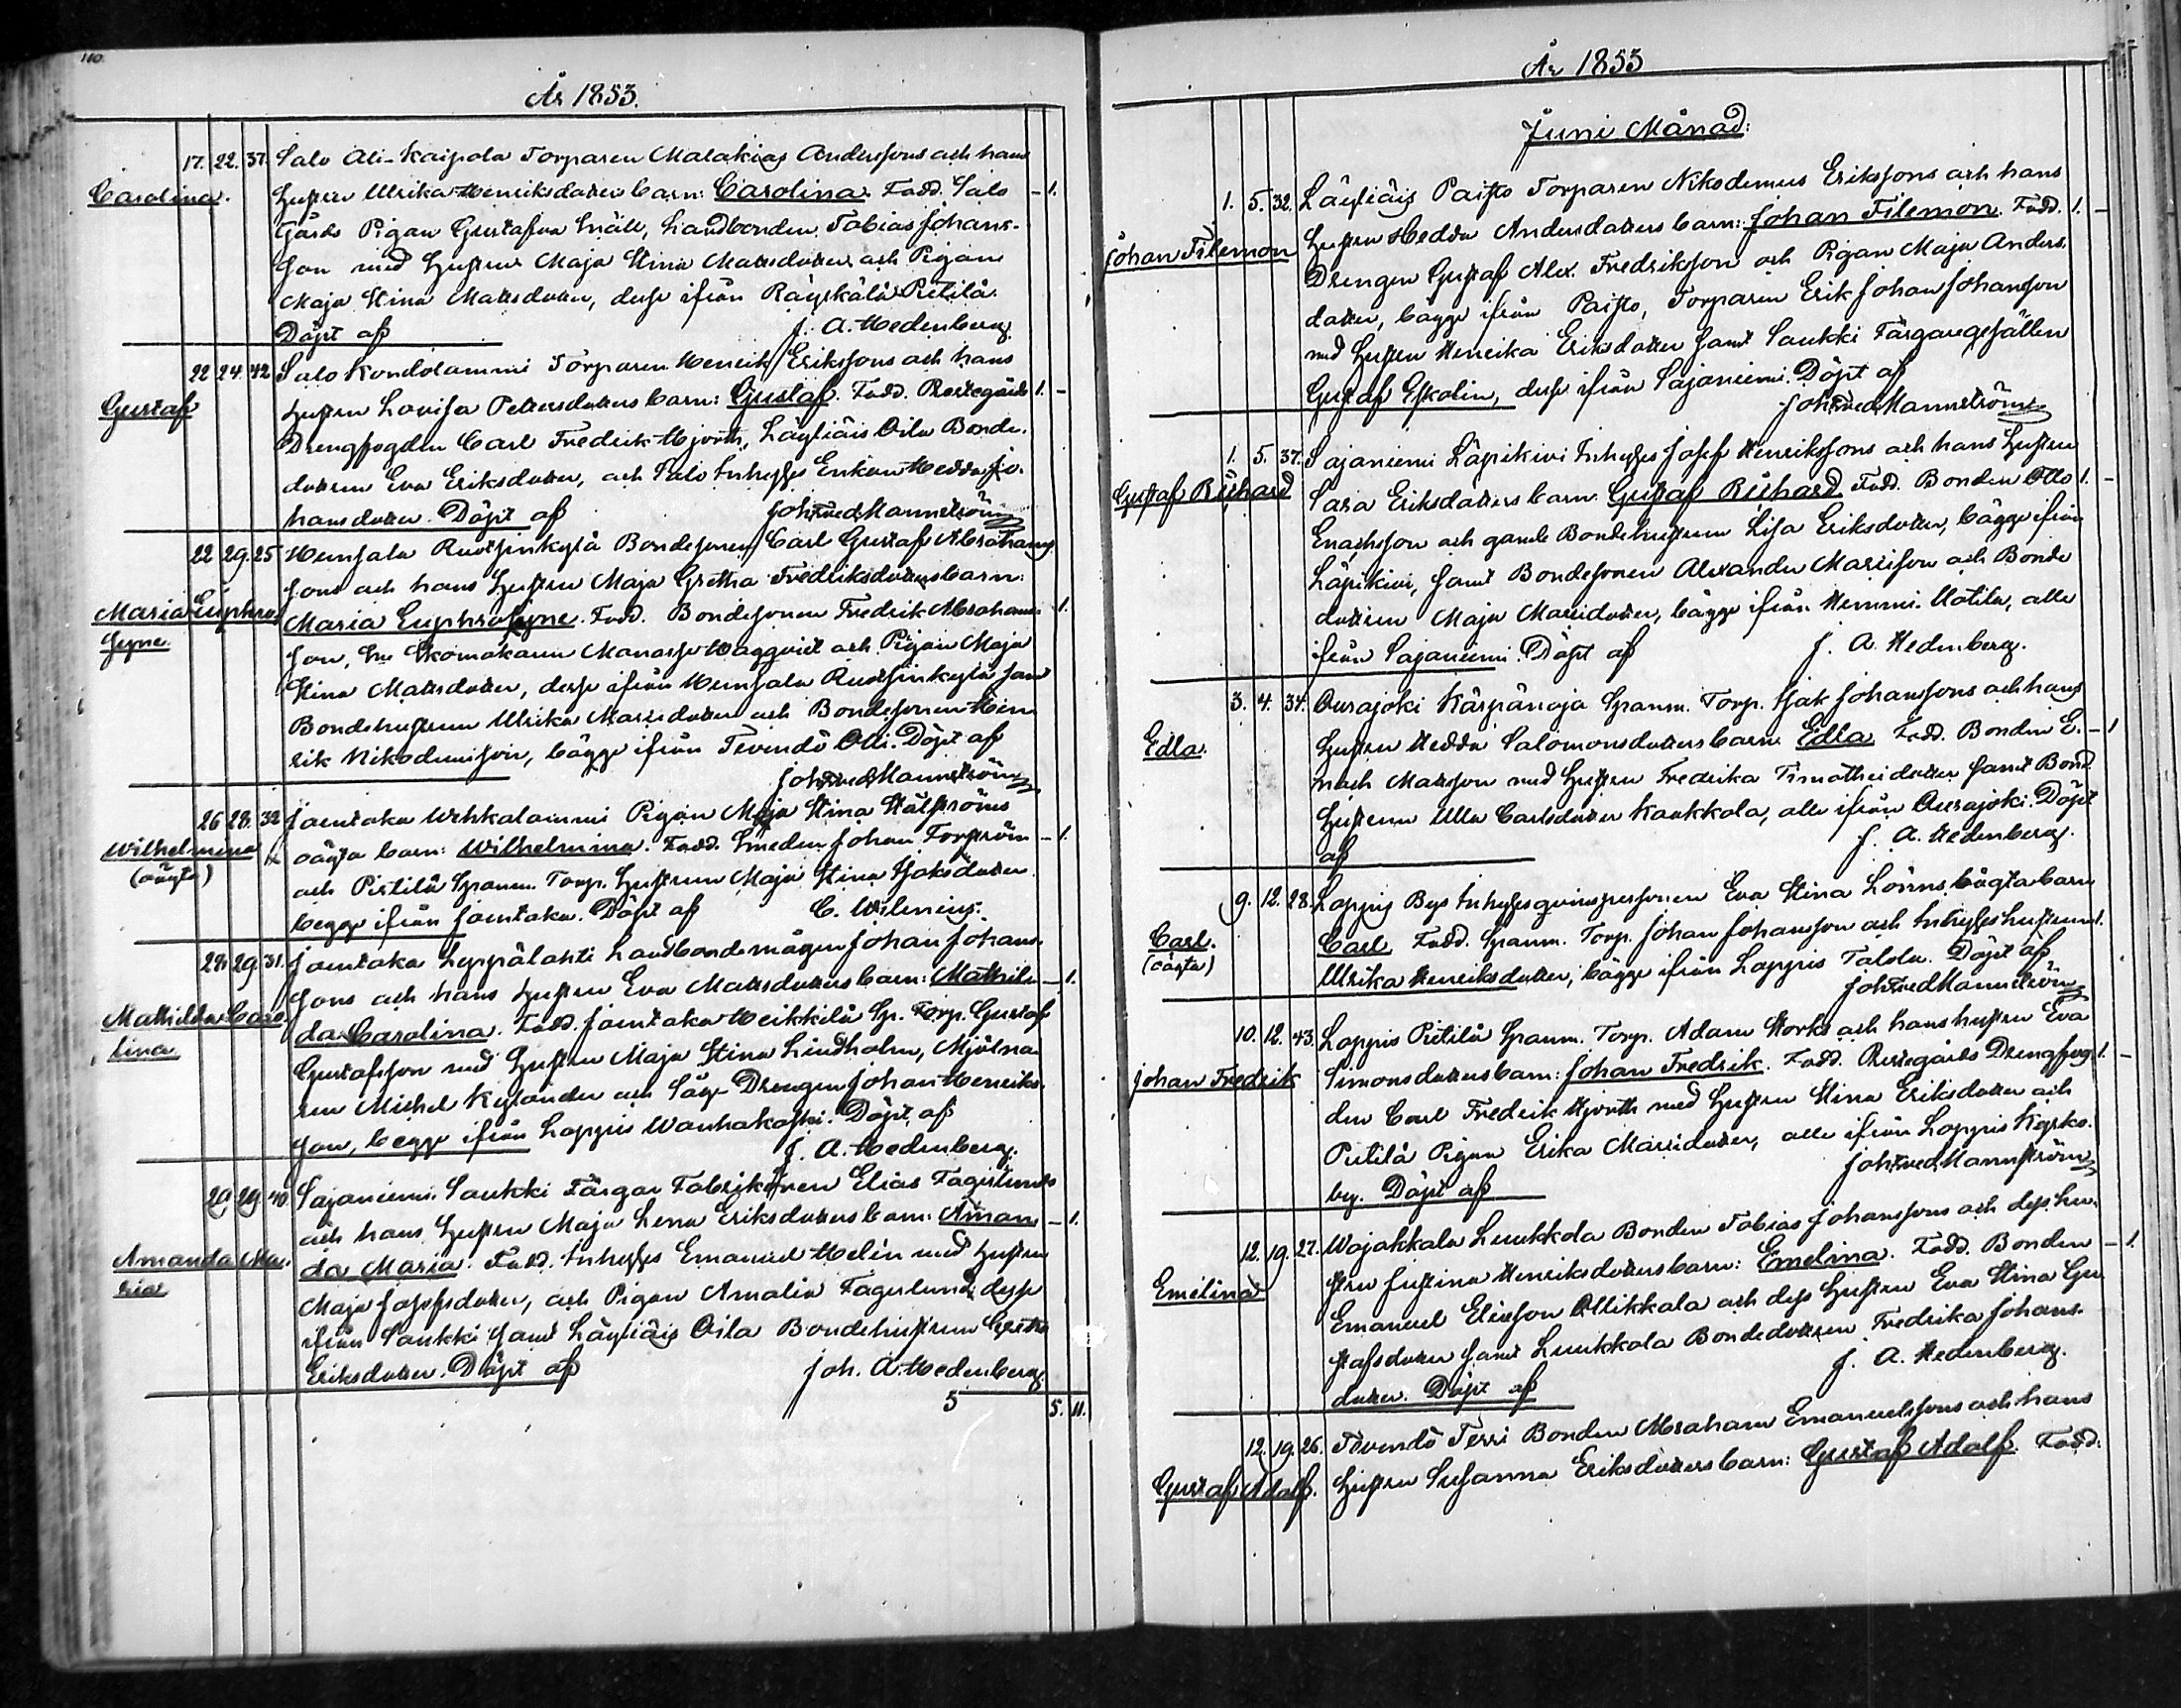 110.
År 1853.
17. 22. 37. Salo Ali-Kaipola Torparen Malakias Anderssons och hans
Carolina. Hustru Ulrika Henriksdotters barn: Carolina. Fadd. Salo – 1.
Gårds Pigan Gustafva Snäll, Landbonden Tobias Johans-
son med Hustru Maja Stina Matsdotter och Pigan
Maja Stina Matsdotter, desse ifrån Räyskälä Pietilä.
Döpt af J. A. Hedenberg.
22 24. 42 Salo Kondolammi Torparen Henrik Erikssons och hans
Gustaf Hustru Lovisa Pettersdotters barn: Gustaf. Fadd. Prestegårds 1. –
Drengfogden Carl Fredrik Hjorth, Läyliäis Oila Bonde-
dottren Eva Eriksdotter, och Salo Inhyses Enkan Hedda Jo-
hansdotter. Döpt af Joh Fred Mannström
22 29. 25 Hunsala Ruotsinkylä Bondesonen Carl Gustaf Abrahams
sons och hans Hustru Maja Gretha Fredriksdotters barn:
Maria Euphro- Maria Euphrosyne. Fadd. Bondesonen Fredrik Abrahams- 1.
syne. son, Skomakaren Manasse Waqqvist och Pigan Maja
Stina Matsdotter, desse ifrån Hunsala Ruotsinkylä samt
Bondehustrun Ulrika Mariedotter och Bondesonen Hen-
rik Nikodemisson, bägge ifrån Tevändö Olli. Döpt af
Joh Fred Mannström
26 28. 32 Joentaka Wehkalammi Pigan Maja Stina Hälströms
Wilhelmina oägta barn: Wilhelmina. Fadd. Smeden Johan Forsström – 1.
(oägta) och Pietilä Spanm. Torp. Hustrun Maja Stina Isaksdotter
begge ifrån Joentaka. Döpt af C. Wilenius.
28. 29. 31. Joentaka Leppälahti Landbondemågen Johan Johans-
sons och hans Hustru Eva Matsdotters barn: Mathil- – 1.
Mathilda Caro- da Carolina. Fadd. Joentaka Heikkilä Sp. Torp. Gustaf
lina. Gustafsson med Hustru Maja Stina Lindholm, Mjölna-
ren Michel Kylander och Såg-Drengen Johan Henriks-
son, begge ifrån Loppis Wanhakoski. Döpt af
J. A. Hedenberg.
29 29. 40 Sajaniemi Saukki Färgar Fabrikören Elias Fagerlunds
och hans Hustru Maja Lena Eriksdotters barn: Aman- – 1.
Amanda Ma- da Maria. Fadd. Inhyses Emanuel Helin med Hustru
ria. Maja Josefsdotter, och Pigan Amalia Fagerlund, desse
ifrån Saukki samt Läyliäis Oila Bondehustrun Gretha
Eriksdotter. Döpt af Joh. A. Hedenberg.
5 5. 11.
År 1853
Juni Månad:
1. 5. 32. Läyliäis Paisto Torparen Nikodemus Erikssons och hans
Johan Filemon Hustru Hedda Andersdotters barn: Johan Filemon. Fadd. 1. –
Drengen Gustaf Alex. Fredriksson och Pigan Maja Anders-
dotter, bägge ifrån Paisto, Torparen Erik Johan Johansson
med Hustru Henrika Eriksdotter samt Saukki Färgaregesällen
Gustaf Eskolin, desse ifrån Sajaniemi. Döpt af
Joh Fred Mannström
1. 5. 37. Sajaniemi Läpikivi Inhyses Josef Henrikssons och hans Hustru
Gustaf Richard Sara Eriksdotters barn: Gustaf Richard. Fadd. Bonden Otto 1. –
Enachsson och gamle Bondehustrun Lisa Eriksdotter, bägge ifrån
Läpikivi, samt Bondesonen Alexander Mariison och Bonde
dottren Maja Mariidotter, bägge ifrån Hemmi Uotila, alle
ifrån Sajaniemi. Döpt af J. A. Hedenberg.
3. 4. 34. Ourajoki Kärpänoja Spanm. Torp. Isak Johanssons och hans
Edla. Hustru Hedda Salomonsdotters barn: Edla. Fadd. Bonden E- – 1
nach Matsson med Hustru Fredrika Timotheidotter samt Bond
Hustrun Ulla Carlsdotter Kaukkola, alle ifrån Ourajoki. Döpt
af J. A. Hedenberg.
9. 12. 28. Loppis Bys Inhysesqvinspersonen Eva Stina Lönns oägta barn
Carl. Carl. Fadd. Spanm. Torp. Johan Johansson och Inhyseshustrun 1.
(oägta) Ulrika Henriksdotter, bägge ifrån Loppis Talola. Döpt af
Joh Fred Mannström
10. 12. 43. Loppis Pietilä Spanm. Torp. Adam Storks och hans hustru Eva
Johan Fredrik Simonsdotters barn: Johan Fredrik. Fadd. Prestegårds Drengfog- 1. –
den Carl Fredrik Hjorth med Hustru Stina Eriksdotter och
Pietilä Pigan Erika Mariidotter, alle ifrån Loppis Kyrko-
by. Döpt af Joh Fred Mannström
12. 19. 27. Wojakkala Luukkola Bonden Tobias Johanssons och dess hu-
Emelina stru Justina Henriksdotters barn: Emelina. Fadd. Bonden – 1.
Emanuel Eliesson Ollikkala och dess Hustru Eva Stina Gu-
stafsdotter samt Luukkola Bondedottren Fredrika Johans-
dotter. Döpt af J. A. Hedenberg.
12. 19. 26. Tevendö Terri Bonden Abraham Emanuelssons och hans
Gustaf Adolf. Hustru Susanna Eriksdotters barn: Gustaf Adolf. Fadd: